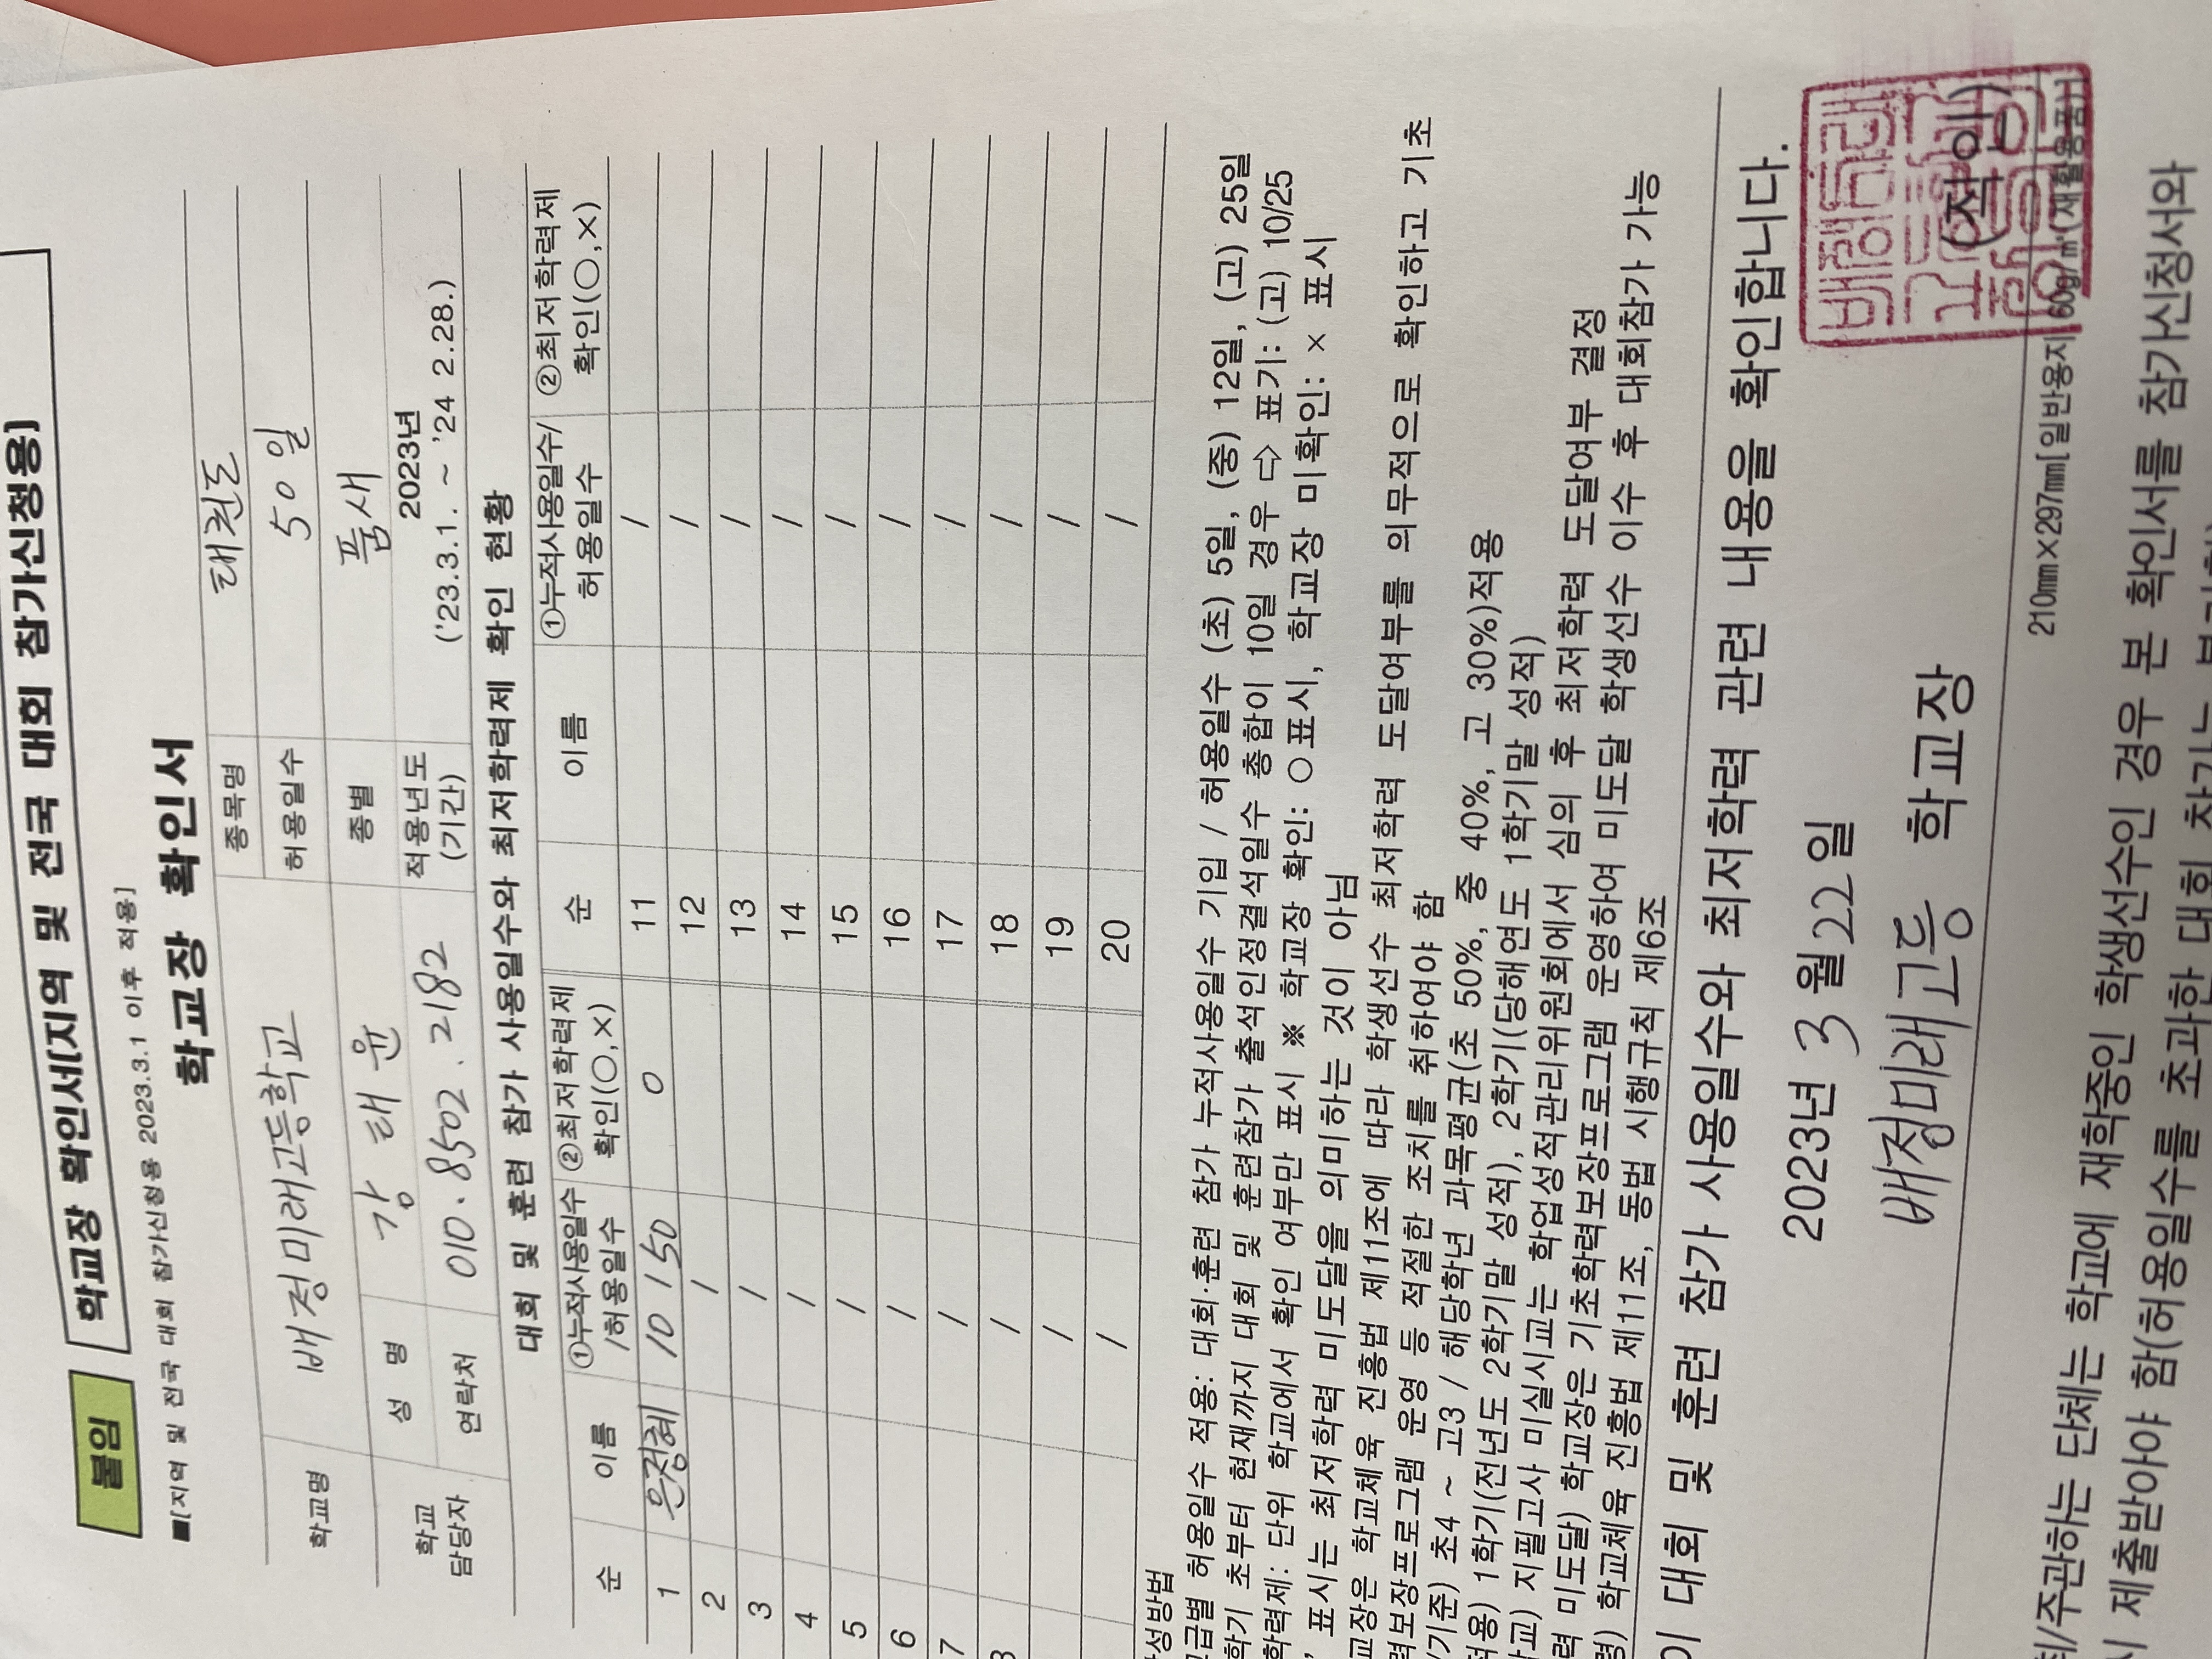 붙임
학교장 확인서[지역 및 전국 대회 참가신청용]
■[지역 및 전국 대회 참가신청용 2023.3.1 이후 적용]
학교장 확인서
학교명 배정미래고등학교 종목명 태권도
허용일수 50일
학교 담당자 성 명 강태윤 종별 품새
연락처 010.8502.2182 적용년도 (기간) 2023년 ('23.3.1. ~ '24 2.28.)
대회 및 훈련 참가 사용일수와 최저학력제 확인 현황
순 이름 ①누적사용일수/허용일수 ②최저학력제 확인(○,×) 순 이름 ①누적사용일수/허용일수 ②최저학력제 확인(○,×)
1 은정혜 10 / 50 ○ 11 /
2 / 12 /
3 / 13 /
4 / 14 /
5 / 15 /
6 / 16 /
7 / 17 /
/ 18 /
/ 19 /
/ 20 /
성방법
급별 허용일수 적용: 대회·훈련 참가 누적사용일수 기입 / 허용일수 (초) 5일, (중) 12일, (고) 25일
학기 초부터 현재까지 대회 및 훈련참가 출석인정결석일수 총합이 10일 경우 ⇨ 표기: (고) 10/25
학력제: 단위 학교에서 확인 여부만 표시 ※ 학교장 확인: ○표시, 학교장 미확인: × 표시
, 표시는 최저학력 미도달을 의미하는 것이 아님
교장은 학교체육 진흥법 제11조에 따라 학생선수 최저학력 도달여부를 의무적으로 확인하고 기초
력보장프로그램 운영 등 적절한 조치를 취하여야 함
/기준) 초4 ~ 고3 / 해당학년 과목평균(초 50%, 중 40%, 고 30%)적용
적용) 1학기(전년도 2학기말 성적), 2학기(당해연도 1학기말 성적)
학교) 지필고사 미실시교는 학업성적관리위원회에서 심의 후 최저학력 도달여부 결정
력 미도달) 학교장은 기초학력보장프로그램 운영하여 미도달 학생선수 이수 후 대회참가 가능
령) 학교체육 진흥법 제11조, 동법 시행규칙 제6조
이 대회 및 훈련 참가 사용일수와 최저학력 관련 내용을 확인합니다.
2023년 3월 22일
배정미래고등 학교장 (직인)
210㎜×297㎜[일반용지 60g/㎡(재활용품)]
최/주관하는 단체는 학교에 재학중인 학생선수인 경우 본 확인서를 참가신청서와
시 제출받아야 함(허용일수를 초과한 대회 참가는